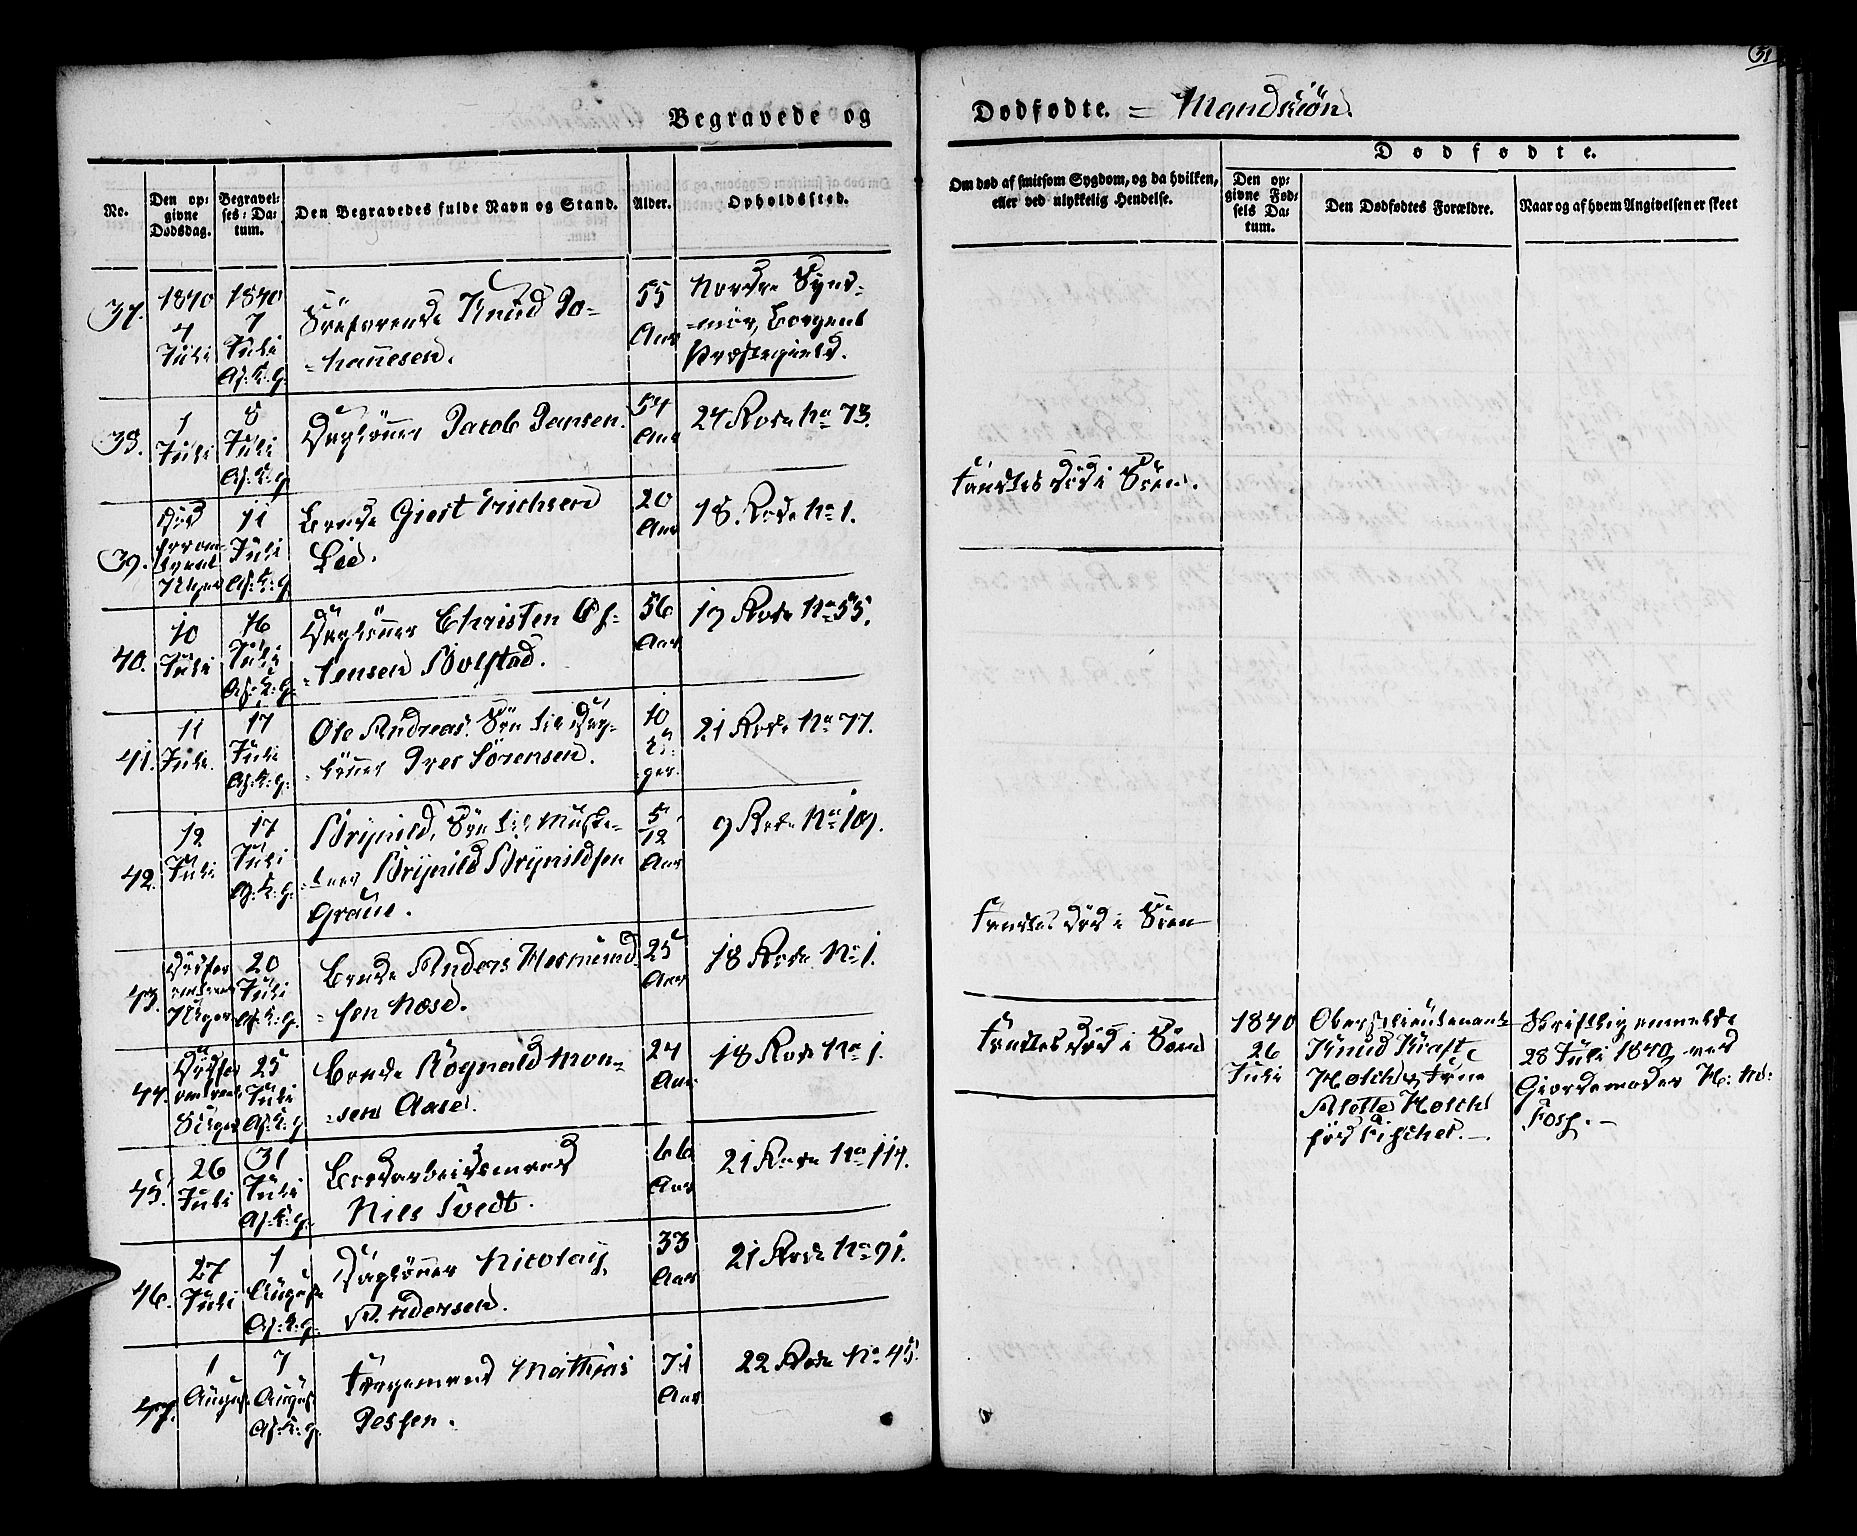 Begravede og
Dødfødte. = Mandkiön.
51
No.
Den op-
givne
Dødsdag.
Begravel-
ses-Da-
tum.
Den Begravedes fulde Navn og Stand.
Alder.
Opholdssted.
Om død af smitsom Sygdom, og da hvilken,
eller ved ulykkelig Hendelse.
Dødfødte.
Den op-
givne Fød-
sels Da-
tum.
Den Dødfødtes Forældre.
Naar og af hvem Angivelsen er skeet
37.
1840
4
Juli
1840
7
Juli
Af: K: g:
Knud Jo-
hannesen.
55
Aar
Nordre Synd-
mör, Borgens
Præstegield.
38.
1
Juli
8
Juli
Af: K: g
Daglönner Jacob Jansen.
54
Aar
24 Rode No 73.
39.
Död
7 Uger
11
Juli
Af: K: g
Bonde Giert Erichsen
Lie.
20
Aar
18. Rode No 1.
Fundtes död i Söen.
40.
10
Juli
16
Juli
Af: K: g:
Daglönner Christen
-tensen Bolstad.
56
Aar
19 Rode No 55.
41.
11
Juli.
17
Juli
Af: K: g:
Ole Andreas. Sön til Dag-
lönner Iver Sörensen.
10
U-
ger.
21 Rode No 77.
42.
12
Juli
17
Juli
Af: K: g.
Brynild, Sön til Muske-
-teer Brynild Brynildsen
Graue.
5
12
Aar
9 Rode No 109.
43.
7 Uger
20
Juli
Af: K: g.
Bonde Anders Hermund-
-sen Næse.
25
Aar
18 Rode No 1.
Fundtes död i Söen
44.
25
Juli
Af: K: g
Bonde Rögnald Mon-
-sen Aase.
24
Aar
18 Rode No 1.
Fundtes död i Söen
1840
26
Juli
Oberstlieutenant
Knud Kraft
Holch og Frue
Alette Holch
föd Fischer. -
Skriftlig anmeldt
28 Juli 1840 ved
Giordemoder
45.
26
Juli
31
Juli
Af: K: g:
Brodarbeidsmand
Nils Tvedt.
66
Aar
21 Rode No 114.
46.
27
Juli
1
August
Af: K: g.
Daglönner Nicolay
Andersen.
33
Aar
21 Rode No 91.
47.
1
August.
7
August
Af: K: g.
Færgemand Mathias
Jessen.
71
Aar
22 Rode No 45.